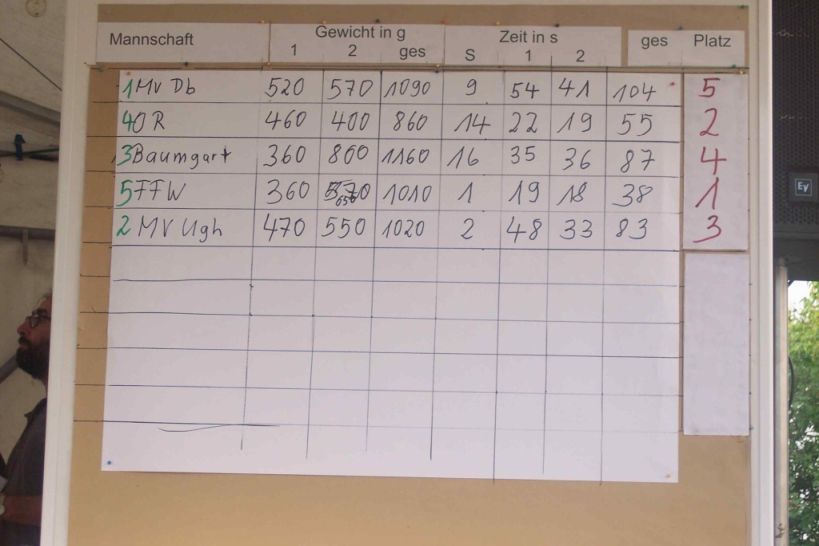 Mannschaft Gewicht in g Zeit in s ges Platz
1 2 ges S 1 2
1 MV Db 520 570 1090 9 54 41 104 5
4 OR 460 400 860 14 22 19 55 2
3 Baumgart 360 800 1160 16 35 36 87 4
5 FFW 360 650 1010 1 19 18 38 1
2 MV Ugh 470 550 1020 2 48 33 83 3
Ey